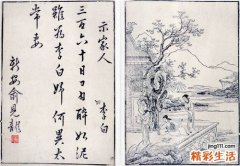 示家人 李白
三百六十日日日醉如泥
雖為李白婦何異太
常妻
新安俞見龍
精彩生活